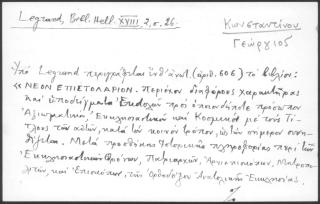 Legrand, Bibl. Hell. XVIII, 2, σ. 26.
Κωνσταντίνου
Γεώργιος
Ὑπὸ Legrand περιγράφεται ὑπ' ἀριθ. (ἀριθ. 606) τὸ βιβλίον:
« ΝΕΟΝ ΕΠΙΣΤΟΛΑΡΙΟΝ. Περιέχον διαφόρους χαρακτῆρας
καὶ ὑποδείγματα Ἐπιστολῶν πρὸς πρόσωπον
Ἀξιωματικὰ, Ἐκκλησιαστικὰ καὶ Κοσμικὰ μὲ τοὺς Τί-
τλους τῶν αὐτῶν, κατὰ τὸν κοινὸν τρόπον, ὡς τὴν σήμερον συνη-
θίζεται. Μετὰ προσθήκης Ἱστορικῆς πληροφορίας περὶ τῶν
Ἐκκλησιαστικῶν Θρόνων, Πατριαρχῶν, Ἀρχιεπισκόπων, Μητροπο-
λιτῶν, καὶ Ἐπισκόπων, τῆς Ὀρθοδόξου Ἀνατολικῆς Ἐκκλησίας.